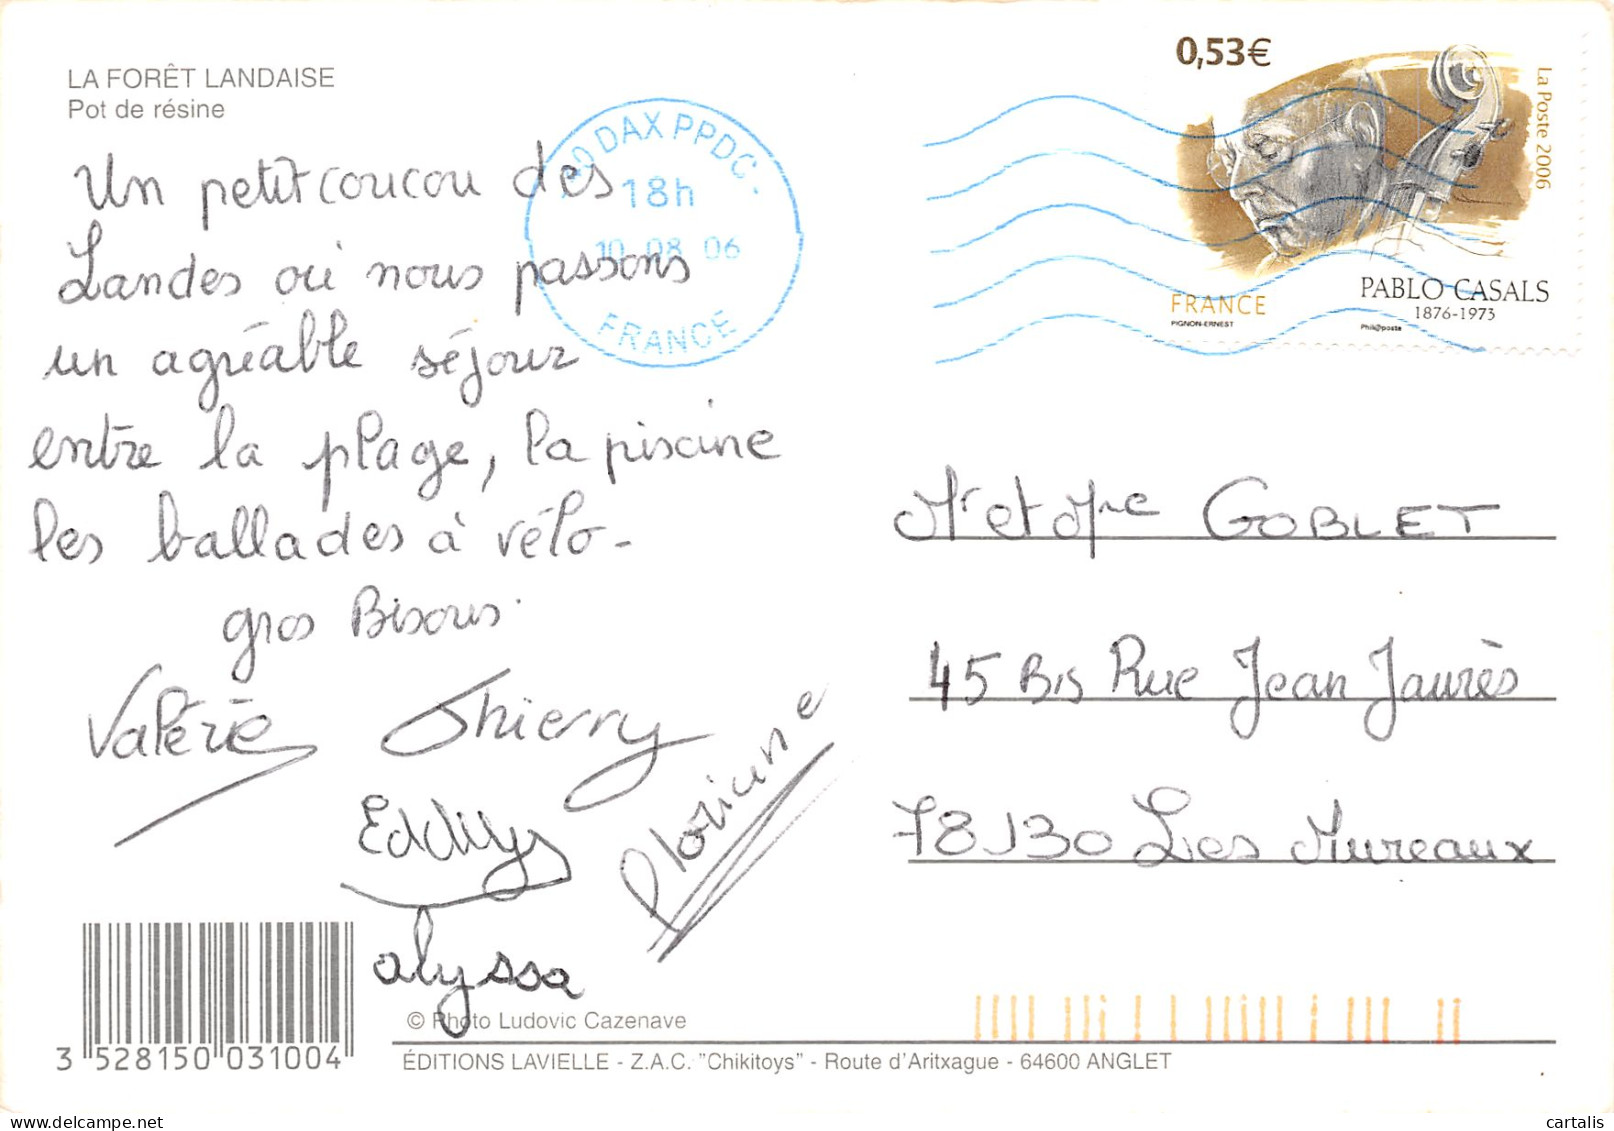 LA FORÊT LANDAISE
Pot de résine
Un petit coucou des
Landes où nous passons
un agréable séjour
entre la plage, la piscine
les ballades à vélo-
gros Bisous.
Valérie Thierry
Floriane
Eddy
alyssa
DAX PPDC-
18h
10-08 06
FRANCE
0,53€
La Poste 2006
FRANCE
PIGNON-ERNEST
PABLO CASALS
1876-1973
Phil@poste
Mr et Mme GOBLET
45 Bis Rue Jean Jaurès
78130 Les Mureaux
3 528150 031004
© Photo Ludovic Cazenave
ÉDITIONS LAVIELLE - Z.A.C. "Chikitoys" - Route d'Aritxague - 64600 ANGLET
cartalis